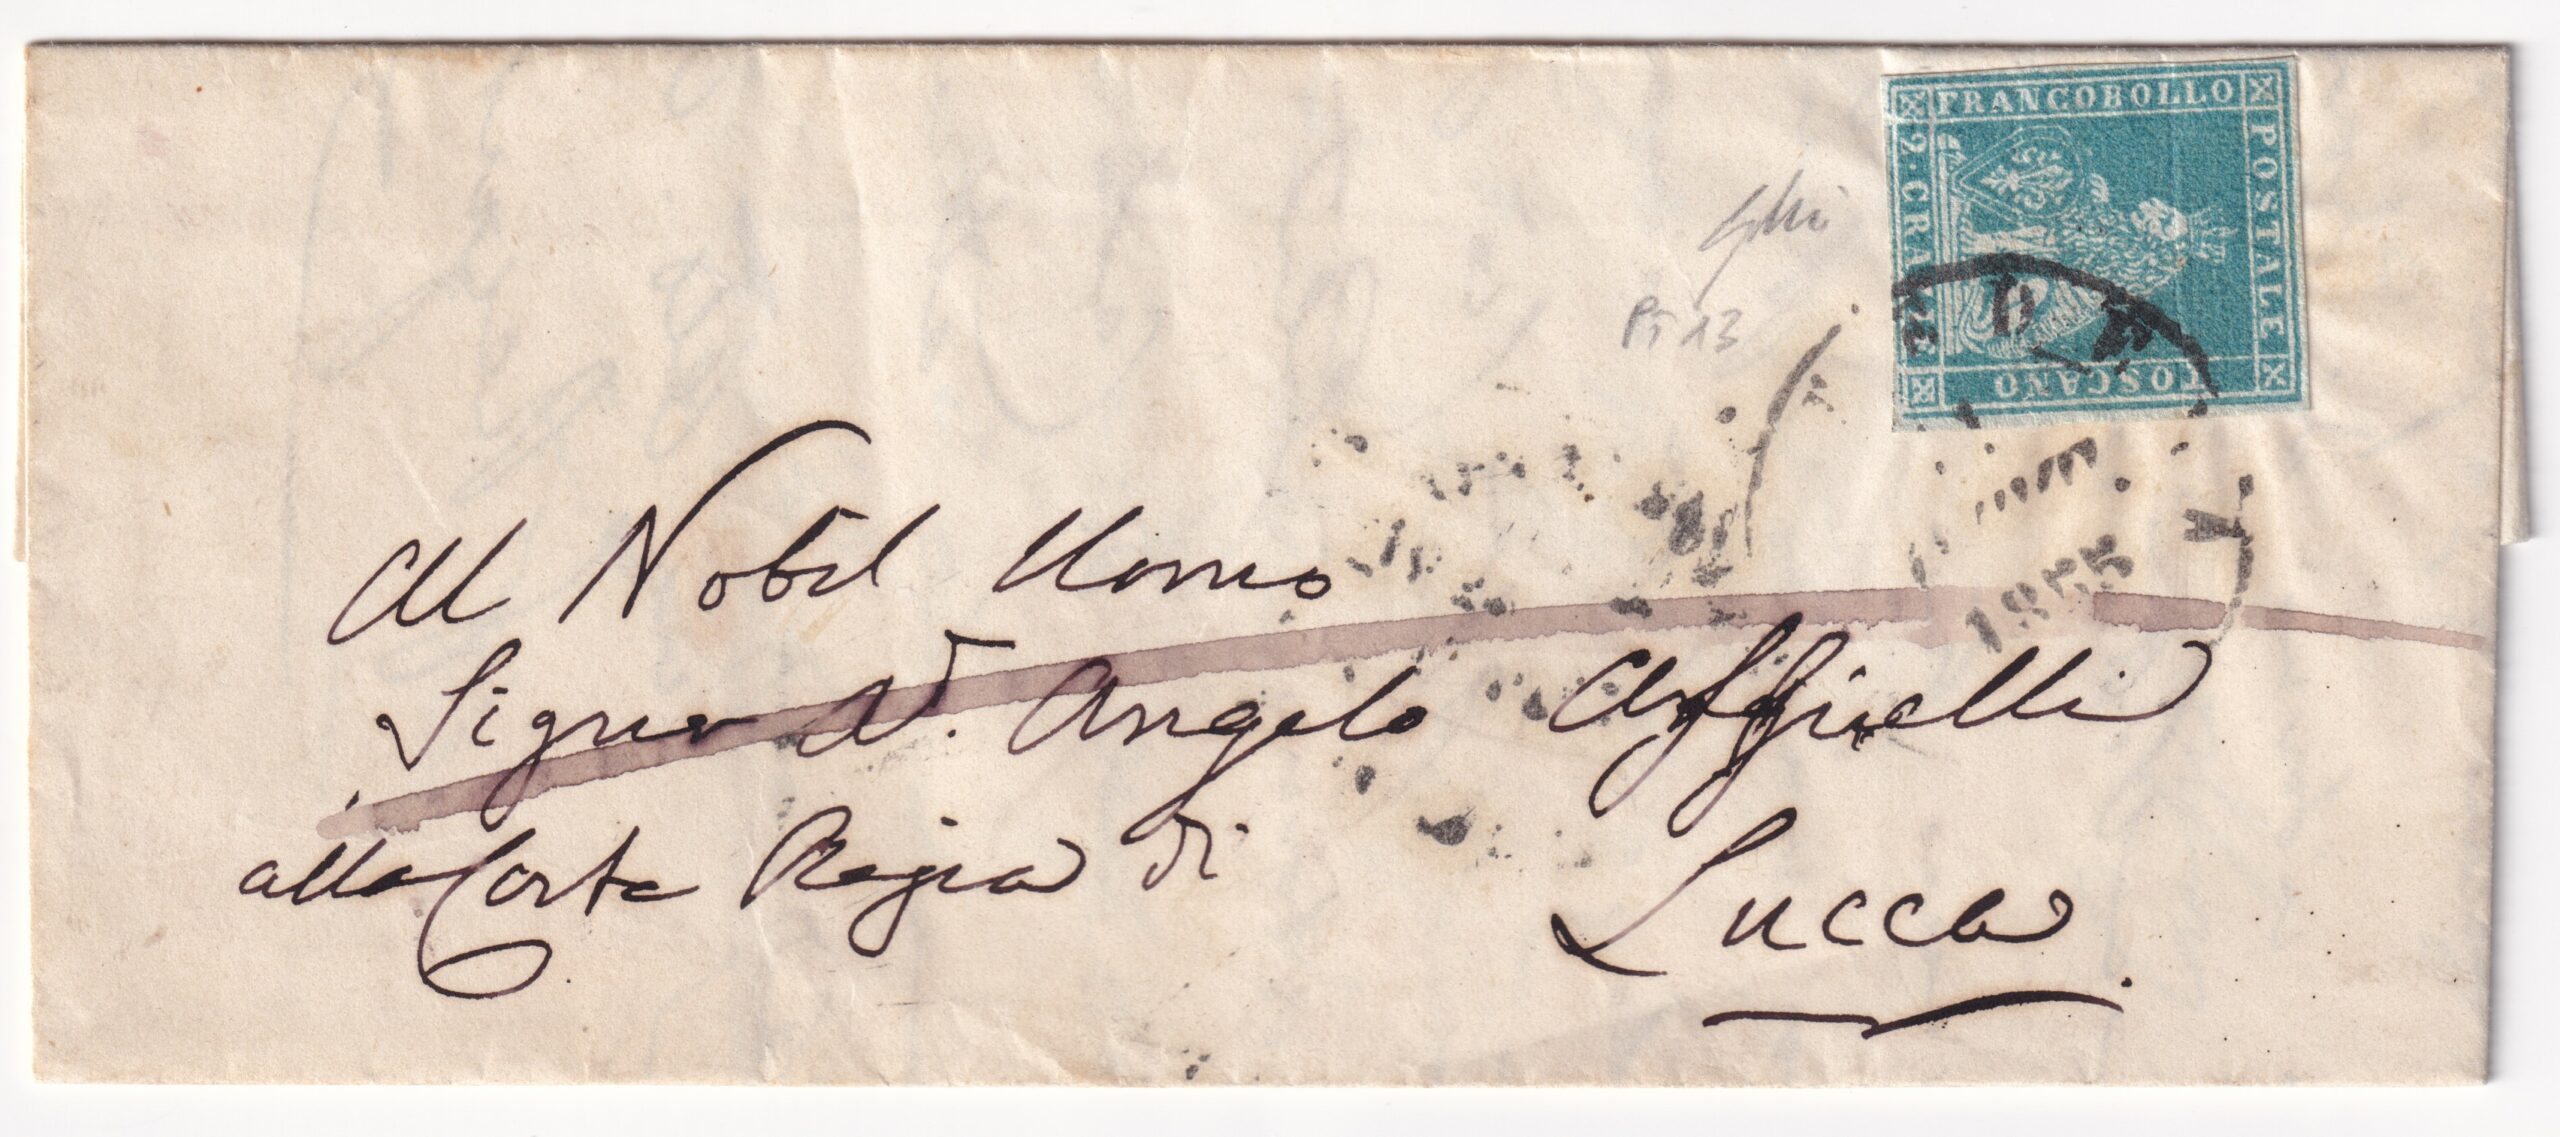 FRANCOBOLLO
POSTALE
TOSCANO
2. CRAZIE
PT 13
1855
Al Nobil Uomo
Signor D. Angelo
alla Corte Regia di
Lucca